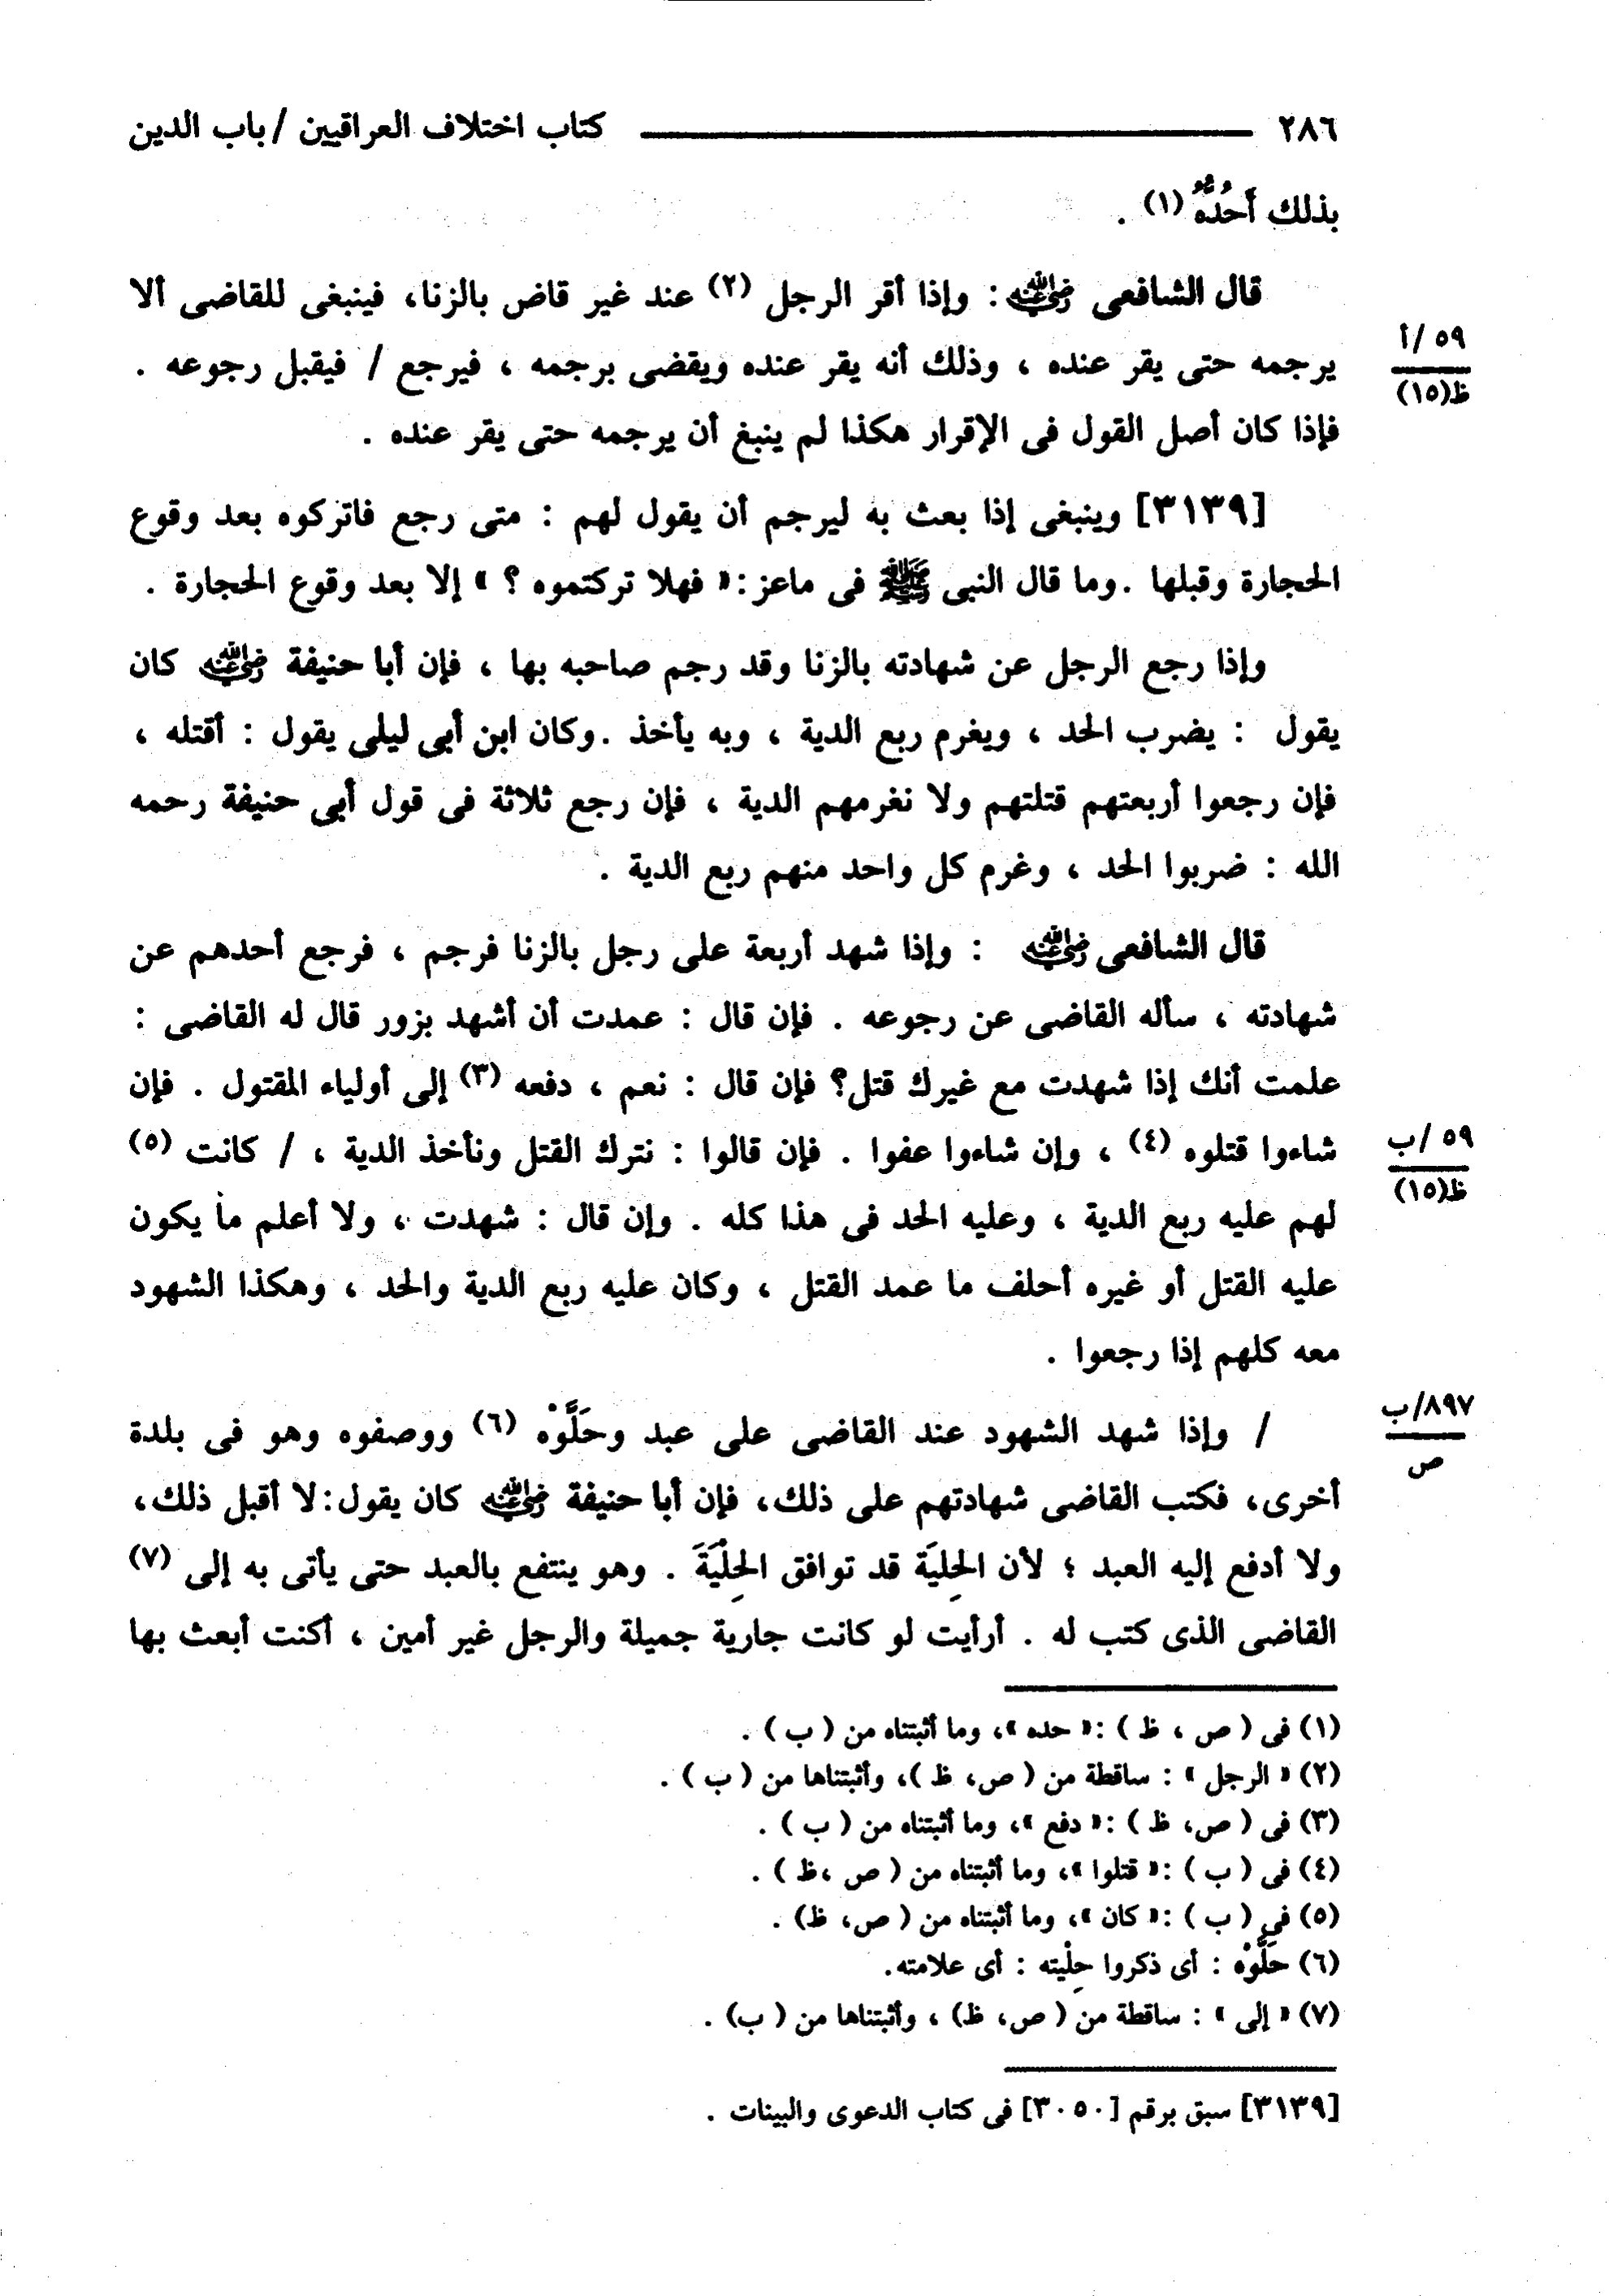 ٢٨٦ كتاب اختلاف العراقيين / باب الدين
بذلك أَحُدُّهُ (١) .
قال الشافعى رضي الله عنه : وإذا أقر الرجل (٢) عند غير قاض بالزنا، فينبغى للقاضى ألا
يرجمه حتى يقر عنده ، وذلك أنه يقر عنده ويقضى برجمه ، فيرجع / فيقبل رجوعه .
٥٩ /أ
ظ(١٥)
فإذا كان أصل القول فى الإقرار هكذا لم ينبغ أن يرجمه حتى يقر عنده .
[٣١٣٩] وينبغى إذا بعث به ليرجم أن يقول لهم : متى رجع فاتركوه بعد وقوع
الحجارة وقبلها . وما قال النبى ﷺ فى ماعز: « فهلا تركتموه ؟ » إلا بعد وقوع الحجارة .
وإذا رجع الرجل عن شهادته بالزنا وقد رجم صاحبه بها ، فإن أبا حنيفة رضي الله عنه كان
يقول : يضرب الحد ، ويغرم ربع الدية ، وبه يأخذ . وكان ابن أبى ليلى يقول : أقتله ،
فإن رجعوا أربعتهم قتلتهم ولا نغرمهم الدية ، فإن رجع ثلاثة فى قول أبى حنيفة رحمه
الله : ضربوا الحد ، وغرم كل واحد منهم ربع الدية .
قال الشافعى رضي الله عنه : وإذا شهد أربعة على رجل بالزنا فرجم ، فرجع أحدهم عن
شهادته ، سأله القاضى عن رجوعه . فإن قال : عمدت أن أشهد بزور قال له القاضى :
علمت أنك إذا شهدت مع غيرك قتل؟ فإن قال : نعم ، دفعه (٣) إلى أولياء المقتول . فإن
شاءوا قتلوه (٤) ، وإن شاءوا عفوا . فإن قالوا : نترك القتل ونأخذ الدية ، / كانت (٥)
٥٩ /ب
ظ(١٥)
لهم عليه ربع الدية ، وعليه الحد فى هذا كله . وإن قال : شهدت ، ولا أعلم ما يكون
عليه القتل أو غيره أحلف ما عمد القتل ، وكان عليه ربع الدية والحد ، وهكذا الشهود
معه كلهم إذا رجعوا .
/ وإذا شهد الشهود عند القاضى على عبد وحَلَّوْه (٦) ووصفوه وهو فى بلدة
٨٩٧/ب
ص
أخرى، فكتب القاضى شهادتهم على ذلك، فإن أبا حنيفة رضي الله عنه كان يقول: لا أقبل ذلك،
ولا أدفع إليه العبد ؛ لأن الحِليَة قد توافق الحِلْيَةَ . وهو ينتفع بالعبد حتى يأتى به إلى (٧)
القاضى الذى كتب له . أرأيت لو كانت جارية جميلة والرجل غير أمين ، أكنت أبعث بها
(١) فى ( ص ، ظ ) :« حده »، وما أثبتناه من ( ب ) .
(٢) « الرجل » : ساقطة من ( ص، ظ )، وأثبتناها من ( ب ) .
(٣) فى ( ص، ظ ) :« دفع »، وما أثبتناه من ( ب ) .
(٤) فى ( ب ) :« قتلوا »، وما أثبتناه من ( ص ،ظ ) .
(٥) فى ( ب ) :« كان »، وما أثبتناه من ( ص، ظ) .
(٦) حَلَّوْه : أى ذكروا حِلْيته : أى علامته.
(٧) « إلى » : ساقطة من ( ص، ظ) ، وأثبتناها من ( ب) .
[٣١٣٩] سبق برقم [٣٠٥٠] فى كتاب الدعوى والبينات .